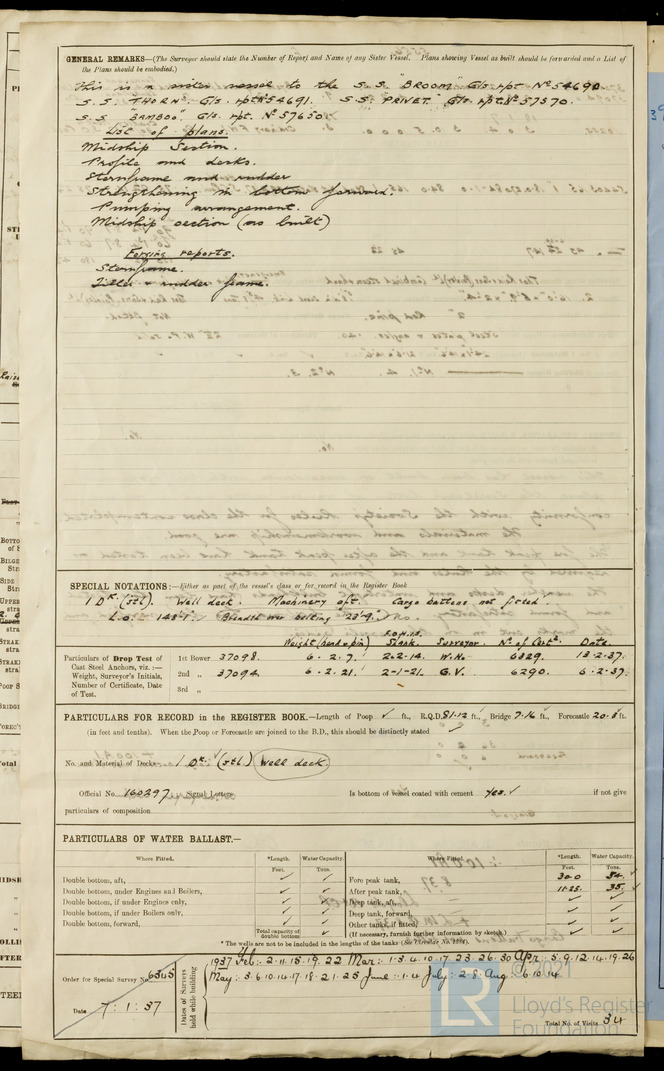 GENERAL REMARKS—(The Surveyor should state the Number of Report and Name of any Sister Vessel. Plans showing Vessel as built should be forwarded and a List of
the Plans should be embodied.)
This is a sister vessel to the S.S. "BROOM" G/s rpt No 54690.
S.S. "THORN". G/s rpt No 54691. S.S. "PRIVET" G/s rpt. No 57570.
S.S. "BAMBOO" G/s rpt. No 57650.
List of plans.
Midship Section.
Profile and decks.
Sternframe and rudder
Strengthening in bottom forward.
Pumping arrangement.
Midship section (as built)
Forging reports.
Sternframe.
Tiller & rudder frame.
SPECIAL NOTATIONS:—Either as part of the vessel's class or for record in the Register Book
1 Dk. (stl). Well deck. Machinery aft. Cargo battens not fitted.
L.O. 148'1". Breadth over belting "23'9".
Weight (head & pin) Shank. Surveyor. No of Cert. Date.
Particulars of Drop Test of
Cast Steel Anchors, viz.:—
Weight, Surveyor's Initials,
Number of Certificate, Date
of Test.
1st Bower 37098. 6.2.7. 2.2.14. W.No 6329. 13.2.37.
2nd „ 37094. 6.2.21. 2-1-21. G.V. 6290. 6.2.37.
3rd „
PARTICULARS FOR RECORD IN THE REGISTER BOOK.—Length of Poop ✓ ft., R.Q.D. 81.12 ft., Bridge 7.16 ft., Forecastle 20.8 ft.
(in feet and tenths). When the Poop or Forecastle are joined to the B.D., this should be distinctly stated
No. and Material of Decks 1 Dk. (stl) Well deck
Official No. 160297 Signal Letters Is bottom of vessel coated with cement Yes. ✓ if not give
particulars of composition
PARTICULARS OF WATER BALLAST.—
Where Fitted. *Length. Water Capacity. Where Fitted. *Length. Water Capacity.
Feet. Tons. Feet. Tons.
Double bottom, aft, ✓ ✓ Fore peak tank, 30.0 84. ✓
Double bottom, under Engines and Boilers, ✓ ✓ After peak tank, 11.25 35. ✓
Double bottom, if under Engines only, ✓ ✓ Deep tank, aft, ✓ ✓
Double bottom, if under Boilers only, ✓ ✓ Deep tank, forward, ✓ ✓
Double bottom, forward, ✓ ✓ Other tanks, if fitted, ✓ ✓
Total capacity of double bottom ✓ (If necessary, furnish further information by sketch.)
* The wells are not to be included in the lengths of the tanks
Order for Special Survey No. 6345
Date 7.1.37
Dates of Surveys
held while building
1937 Feb: 2.11.15.19.22 Mar: 1.3.4.10.17.23.26.30 Apr: 5.9.12.14.19.26
May: 3.6.10.14.17.18.21.25 June: 1.4 July: 2.8. Aug: 6.10.14
Total No. of Visits 34
© 2021
LR Lloyd's Register
Foundation